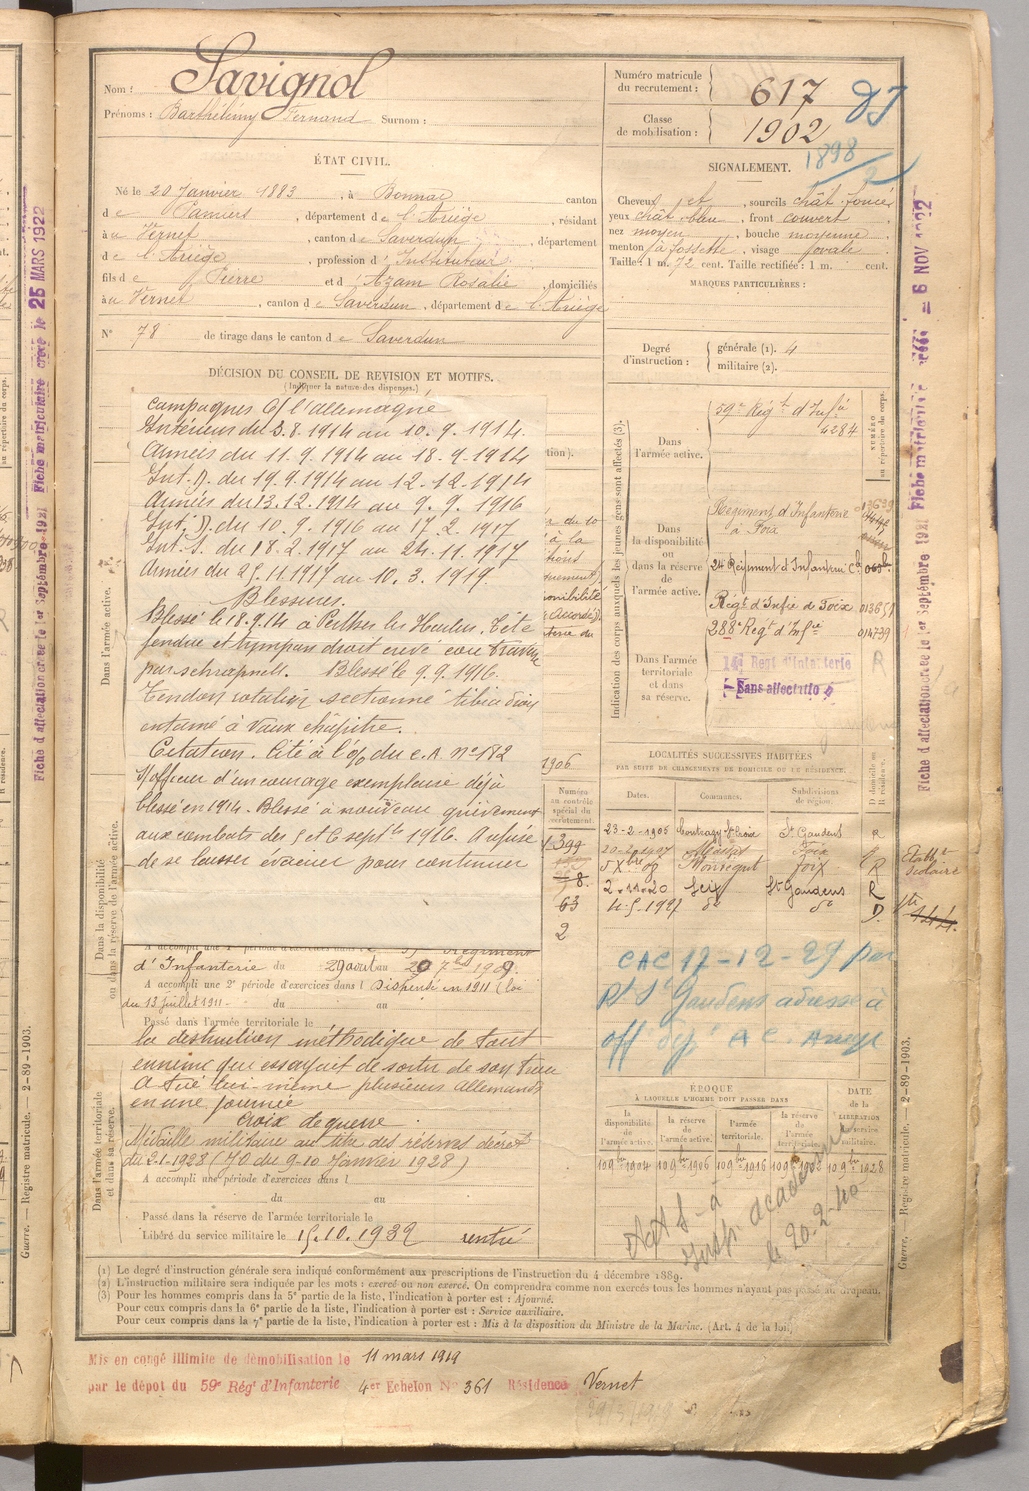 Nom : Savignol
Prénoms : Barthélemy Fernand Surnom :
Numéro matricule du recrutement : 617
Classe de mobilisation : 1902
1898/2
ÉTAT CIVIL.
Né le 20 Janvier 1883, à Bonnac, canton
de Pamiers, département de l'Ariège, résidant
à Vernet, canton de Saverdun, département
de l'Ariège, profession d'Instituteur
fils de Pierre et d'Azam Rosalie, domiciliés
à Vernet, canton de Saverdun, département de l'Ariège
N° 78 de tirage dans le canton de Saverdun
SIGNALEMENT.
Cheveux et, sourcils chât. foncé
yeux chât. bleu, front couvert
nez moyen, bouche moyenne
menton à fossette, visage jovale
Taille : 1 m. 72 cent. Taille rectifiée : 1 m. cent.
MARQUES PARTICULIÈRES :
Degré d'instruction : générale (1). 4
militaire (2).
DÉCISION DU CONSEIL DE REVISION ET MOTIFS.
(Indiquer la nature des dispenses.)
Campagnes C/ l'allemagne
Intérieur du 3.8.1914 au 10.9.1914.
Armées du 11.9.1914 au 18.9.1914
Int. D. du 19.9.1914 au 12.12.1914
Armées du 13.12.1914 au 9.9.1916
Int. D. du 10.9.1916 au 17.2.1917
Int. S. du 18.2.1917 au 24.11.1917
Armées du 25.11.1917 au 10.3.1919.
Blessures.
Blessé le 18.9.14 à Perthes les Hurlus. Tête
fendue et tympan droit crevé cou traversé
par schrapnell. Blessé le 9.9.1916.
Tendon rotulien sectionné tibia droit
entamé à Vaux chapitre.
Citation. Cité à l'o/o du C.A n° 182
Sofficier d'un courage exemplaire déjà
blessé en 1914. Blessé à nouveau grièvement
aux combats des 5 et 6 septbre 1916. A refusé
de se laisser évacuer pour continuer
d'Infanterie du 29 août au 20 7bre 1909.
A accompli une 2e période d'exercices dans l Dispensé en 1911 (loi
du 13 juillet 1911. du au
Passé dans l'armée territoriale le
la destruction méthodique de tout
ennemi qui essayait de sortir de son trou
A tué lui-même plusieurs allemands
en une journée
Croix de guerre
Médaille militaire au titre des réserves décret
du 2-1-1928 (JO du 9-10 Janvier 1928)
A accompli une période d'exercices dans l
du au
Passé dans la réserve de l'armée territoriale le
Libéré du service militaire le 15.10.1932 rentré
Dans l'armée active.
Dans la disponibilité ou dans la réserve de l'armée active.
Dans l'armée territoriale et dans sa réserve.
Indication des corps auxquels les jeunes gens sont affectés (3).
Dans l'armée active.
59e Régt d'Infie
4284
NUMÉRO au répertoire du corps.
Dans la disponibilité ou dans la réserve de l'armée active.
Régiment d'Infanterie à Foix
24 Régiment d'Infanterie Cal
Régt d'Infie de Foix 013651
288e Regt d'Infie 014739
Dans l'armée territoriale et dans sa réserve.
14e Regt d'Infanterie
Sans affectation
R
LOCALITÉS SUCCESSIVES HABITÉES
PAR SUITE DE CHANGEMENTS DE DOMICILE OU DE RÉSIDENCE.
Dates. Communes. Subdivisions de région. D domicile ou R résidence.
23-2-1905 St Gaudens R
Foix
Montégut Foix R
2-11-20 St Gaudens R
4-5-1927 do do D.
1906
Numéro au contrôle spécial du recrutement.
399
8.
63
2
CAC 17-12-29 par
Rt St Gaudens adressé à
ÉPOQUE
À LAQUELLE L'HOMME DOIT PASSER DANS
la disponibilité de l'armée active. la réserve de l'armée active. l'armée territoriale. la réserve de l'armée territoriale. DATE de la LIBÉRATION du service militaire.
10 9bre 1904 10 9bre 1906 10 9bre 1916 10 9bre 1928
Insp. académie
le 20-2-40
(1) Le degré d'instruction générale sera indiqué conformément aux prescriptions de l'instruction du 4 décembre 1889.
(2) L'instruction militaire sera indiquée par les mots : exercé ou non exercé. On comprendra comme non exercés tous les hommes n'ayant pas passé au drapeau.
(3) Pour les hommes compris dans la 5e partie de la liste, l'indication à porter est : Ajourné.
Pour ceux compris dans la 6e partie de la liste, l'indication à porter est : Service auxiliaire.
Pour ceux compris dans la 7e partie de la liste, l'indication à porter est : Mis à la disposition du Ministre de la Marine. (Art. 4 de la loi)
Mis en congé illimité de démobilisation le 11 mars 1919
par le dépot du 59e Régt d'Infanterie 4er Echelon N° 361 Résidence Vernet
Guerre. — Registre matricule. 2-89-1903.
Guerre. — Registre matricule. — 2-89-1903.
Fiche d'affectation créée le 1er Septembre 1921 Fiche matriculaire créée le 25 MARS 1922
Fiche d'affectation créée le 1er Septembre 1921 Fiche matriculaire créée le 6 NOV 1922